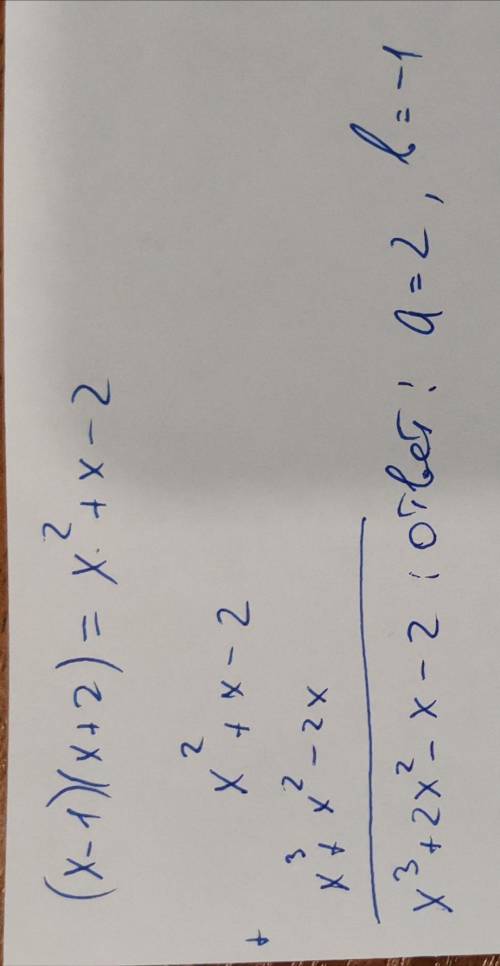 (x-1)(x+2) = x² + x - 2
x² + x - 2
+
x³ + x² - 2x
x³ + 2x² - x - 2 ; ответ: a = 2, b = -1